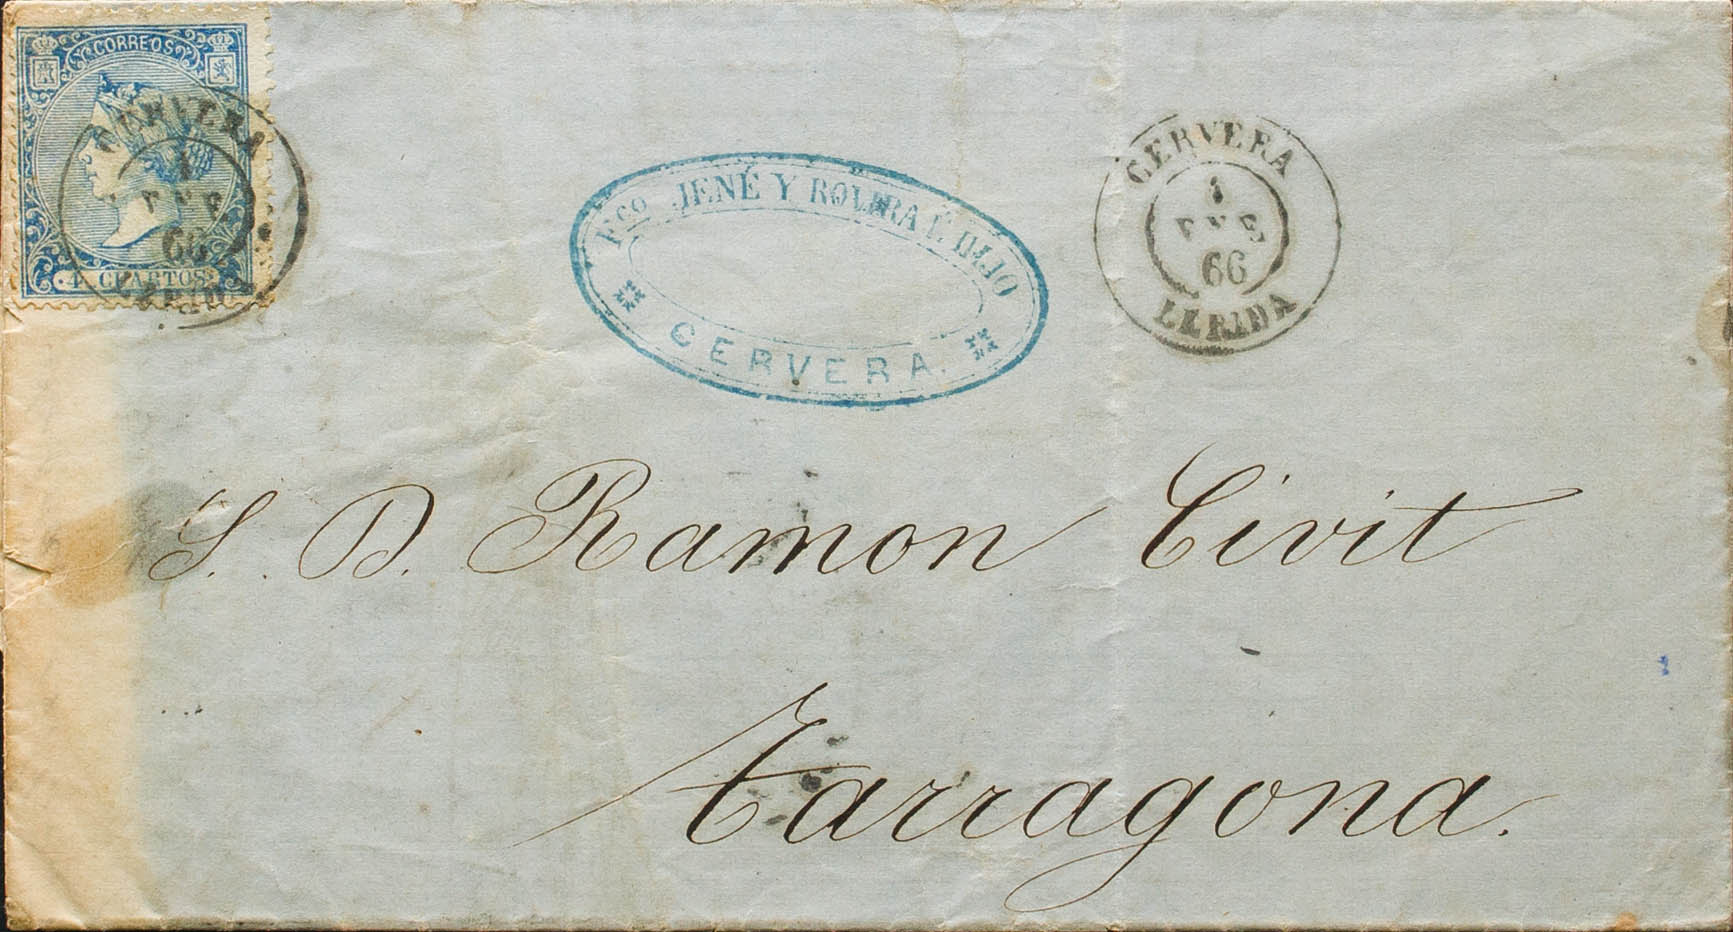 CORREOS
4 CUARTOS
CERVERA
1
66
LERIDA
Fco. JENÉ Y ROVIRA É HIJO
CERVERA.
CERVERA
1
66
LERIDA
S. D. Ramon Civit
Tarragona.